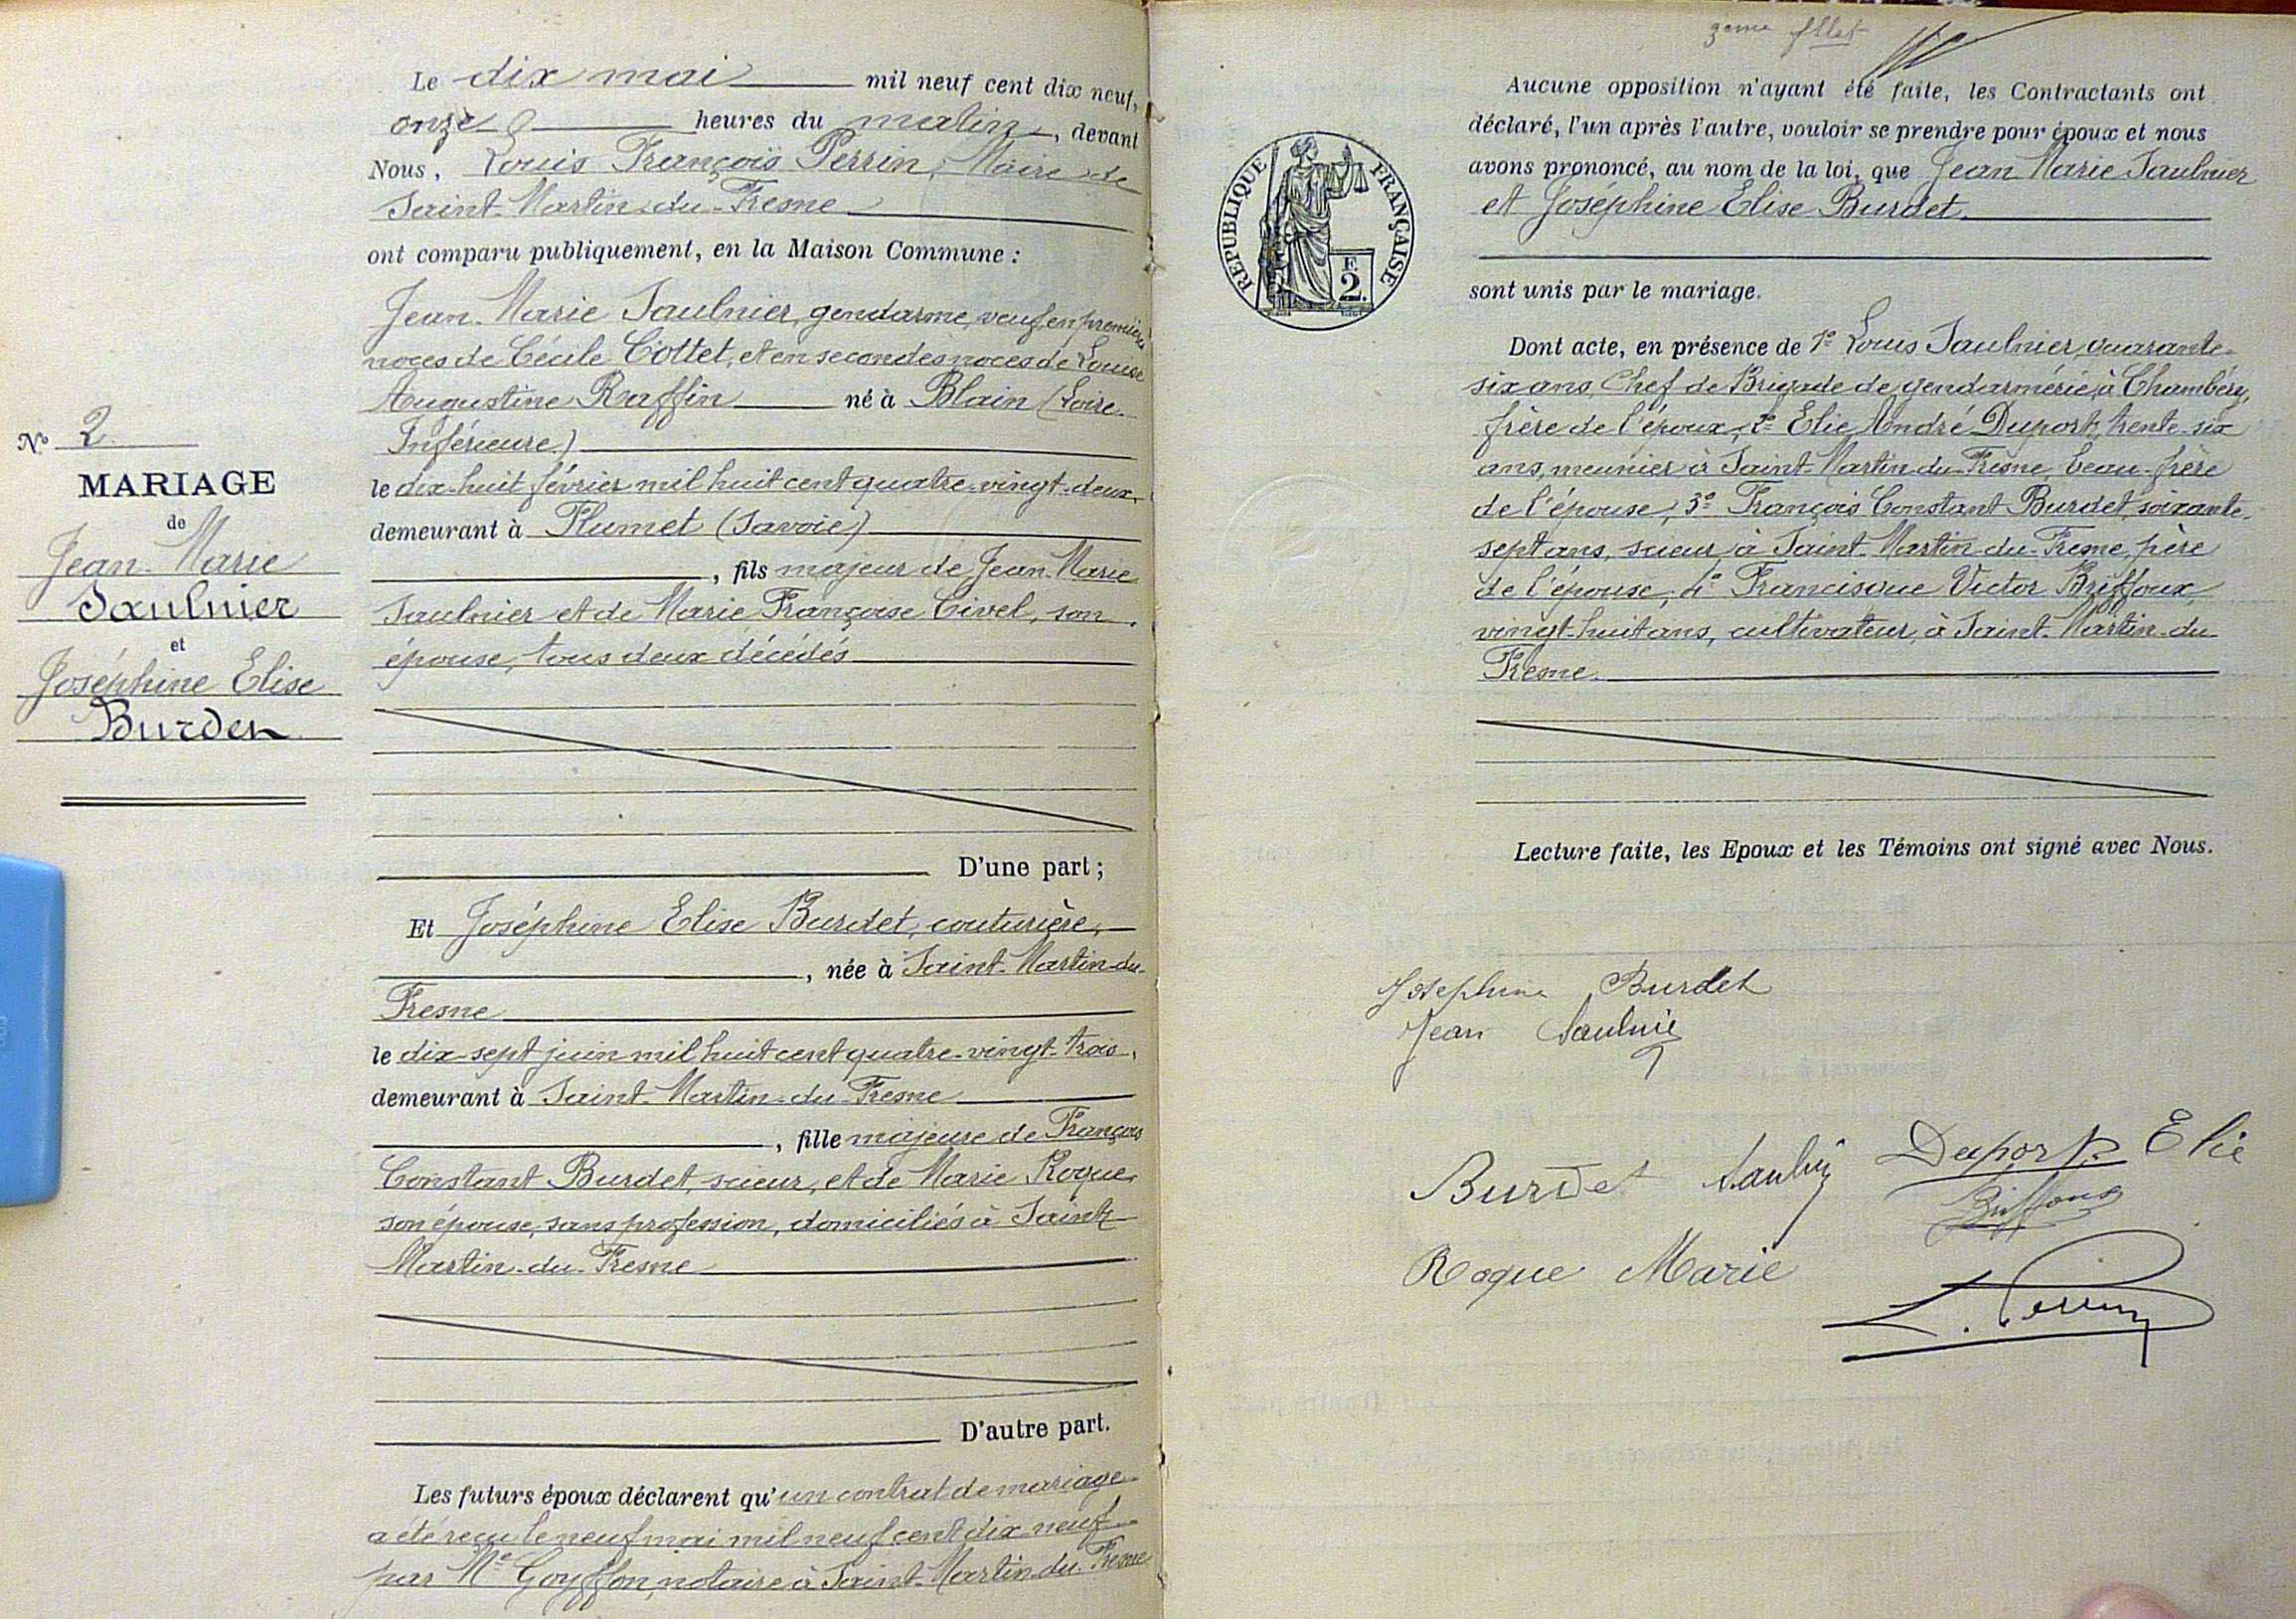 N° 2
MARIAGE
de
Jean-Marie
Saulnier
et
Joséphine Elise
Burdet
Le dix mai mil neuf cent dix neuf,
onze heures du matin, devant
Nous, Louis François Perrin, Maire de
Saint-Martin-du-Fresne
ont comparu publiquement, en la Maison Commune :
Jean-Marie Saulnier, gendarme, veuf en premières
noces de Cécile Cottet, et en secondes noces de Louise
Augustine Raffin né à Blain (Loire-
Inférieure)
le dix-huit février mil huit cent quatre-vingt-deux,
demeurant à Flumet (Savoie)
, fils majeur de Jean-Marie
Saulnier et de Marie Françoise Civel, son
épouse, tous deux décédés
D'une part ;
Et Joséphine Elise Burdet, couturière,
, née à Saint-Martin-du-
Fresne
le dix-sept juin mil huit cent quatre-vingt-trois,
demeurant à Saint-Martin-du-Fresne
, fille majeure de François
Constant Burdet, scieur, et de Marie Roque,
son épouse, sans profession, domiciliés à Saint-
Martin-du-Fresne
D'autre part.
Les futurs époux déclarent qu'un contrat de mariage
a été reçu le neuf mai mil neuf cent dix neuf
par Me Goyffon, notaire à Saint-Martin-du-Fresne
RÉPUBLIQUE FRANÇAISE
F.
2.
Aucune opposition n'ayant été faite, les Contractants ont
déclaré, l'un après l'autre, vouloir se prendre pour époux et nous
avons prononcé, au nom de la loi, que Jean-Marie Saulnier
et Joséphine Elise Burdet
sont unis par le mariage.
Dont acte, en présence de 1° Louis Saulnier, quarante-
six ans, Chef de Brigade de gendarmerie, à Chambéry,
frère de l'époux, 2° Elie André Duport, trente-six
ans, meunier à Saint-Martin-du-Fresne, beau-frère
de l'épouse, 3° François Constant Burdet, soixante-
sept ans, scieur à Saint-Martin-du-Fresne, père
de l'épouse, 4° Francisque Victor Briffoux,
vingt-huit ans, cultivateur, à Saint-Martin-du-
Fresne.
Lecture faite, les Epoux et les Témoins ont signé avec Nous.
Josephine Burdet
Jean Saulnier
Burdet Saulnier Duport Elie
Briffoux
Roque Marie
L. Perrin